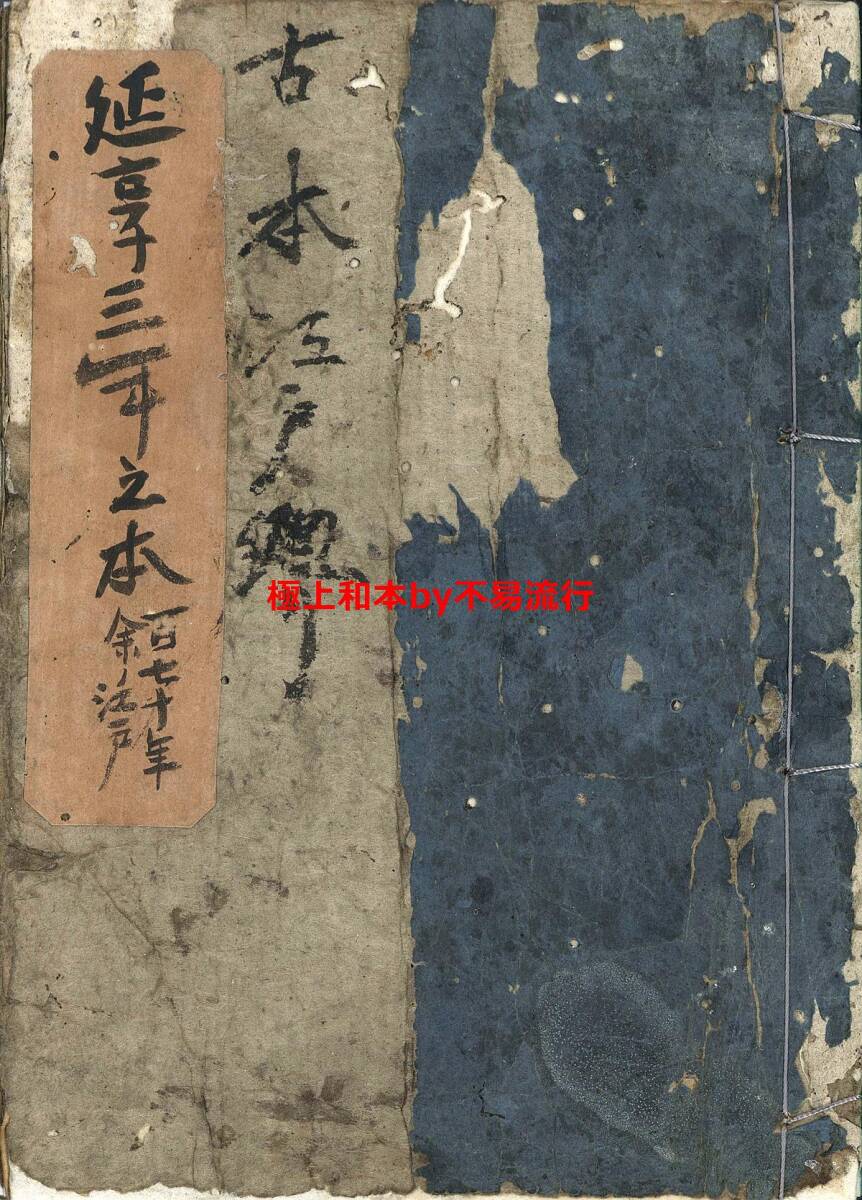 古本江戸
延享三年之本
百七十年
余ノ江戸
極上和本by不易流行